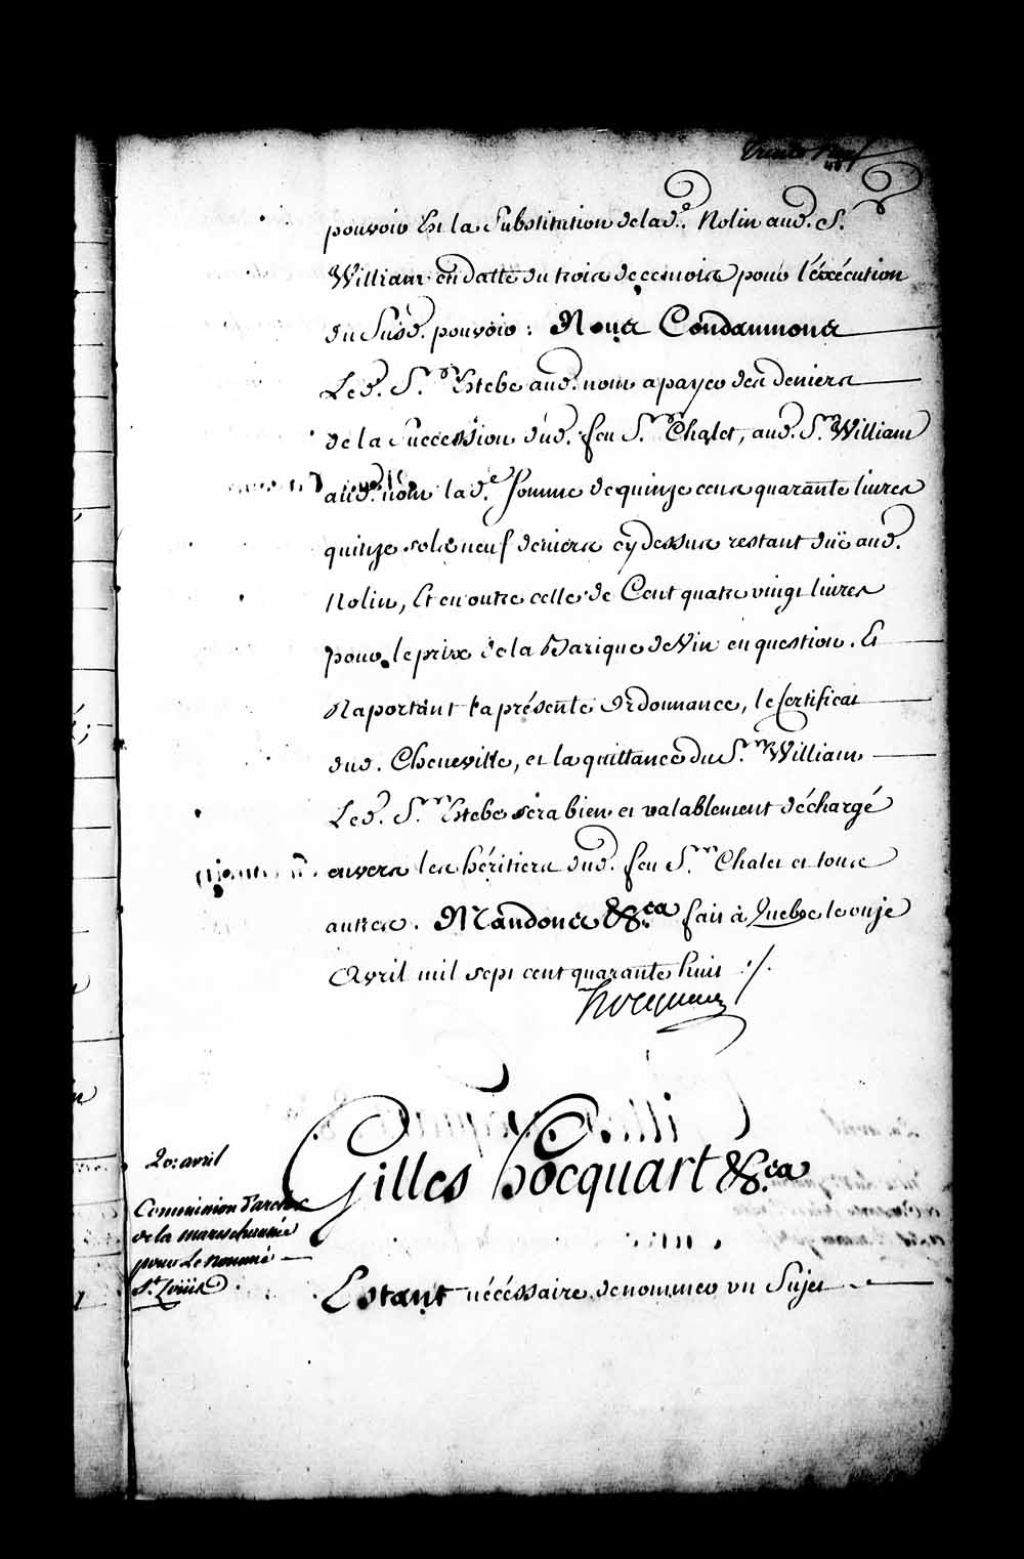 pouvoir Et la Substitution de lad.e Nolin aud. S.r
William en datte du trois de ce mois pour l'éxécution
du Susd. pouvoir : Nous Condamnons
Led. S.r Estebe aud. nom a payer des deniers
de la Succession dud. feu S.r Chalet, aud. S.r William
aud. nom lad.e Somme de quinze cens quarante livres
quinze sols neuf deniers cy dessus restant düe aud.
Nolin, Et en outre celle de Cent quatre vingt livres
pour le prix de la Barique de Vin en question. Et
Raportant la présente Ordonnance, le Certificat
dud. Cheneville, et la quittance du S.r William
Led. S.r Estebe sera bien et valablement déchargé
envers les héritiers dud. feu S.r Chalet et tous
autres. Mandons &c.a fait à Quebec le onze
Avril mil sept cent quarante huit ./.
hocquart
20: avril
Commission d'archer
de la mareschaussée
pour Le nommé
S.t Loüis
Gilles hocquart &c.a
Estant nécéssaire de nommer un Sujet